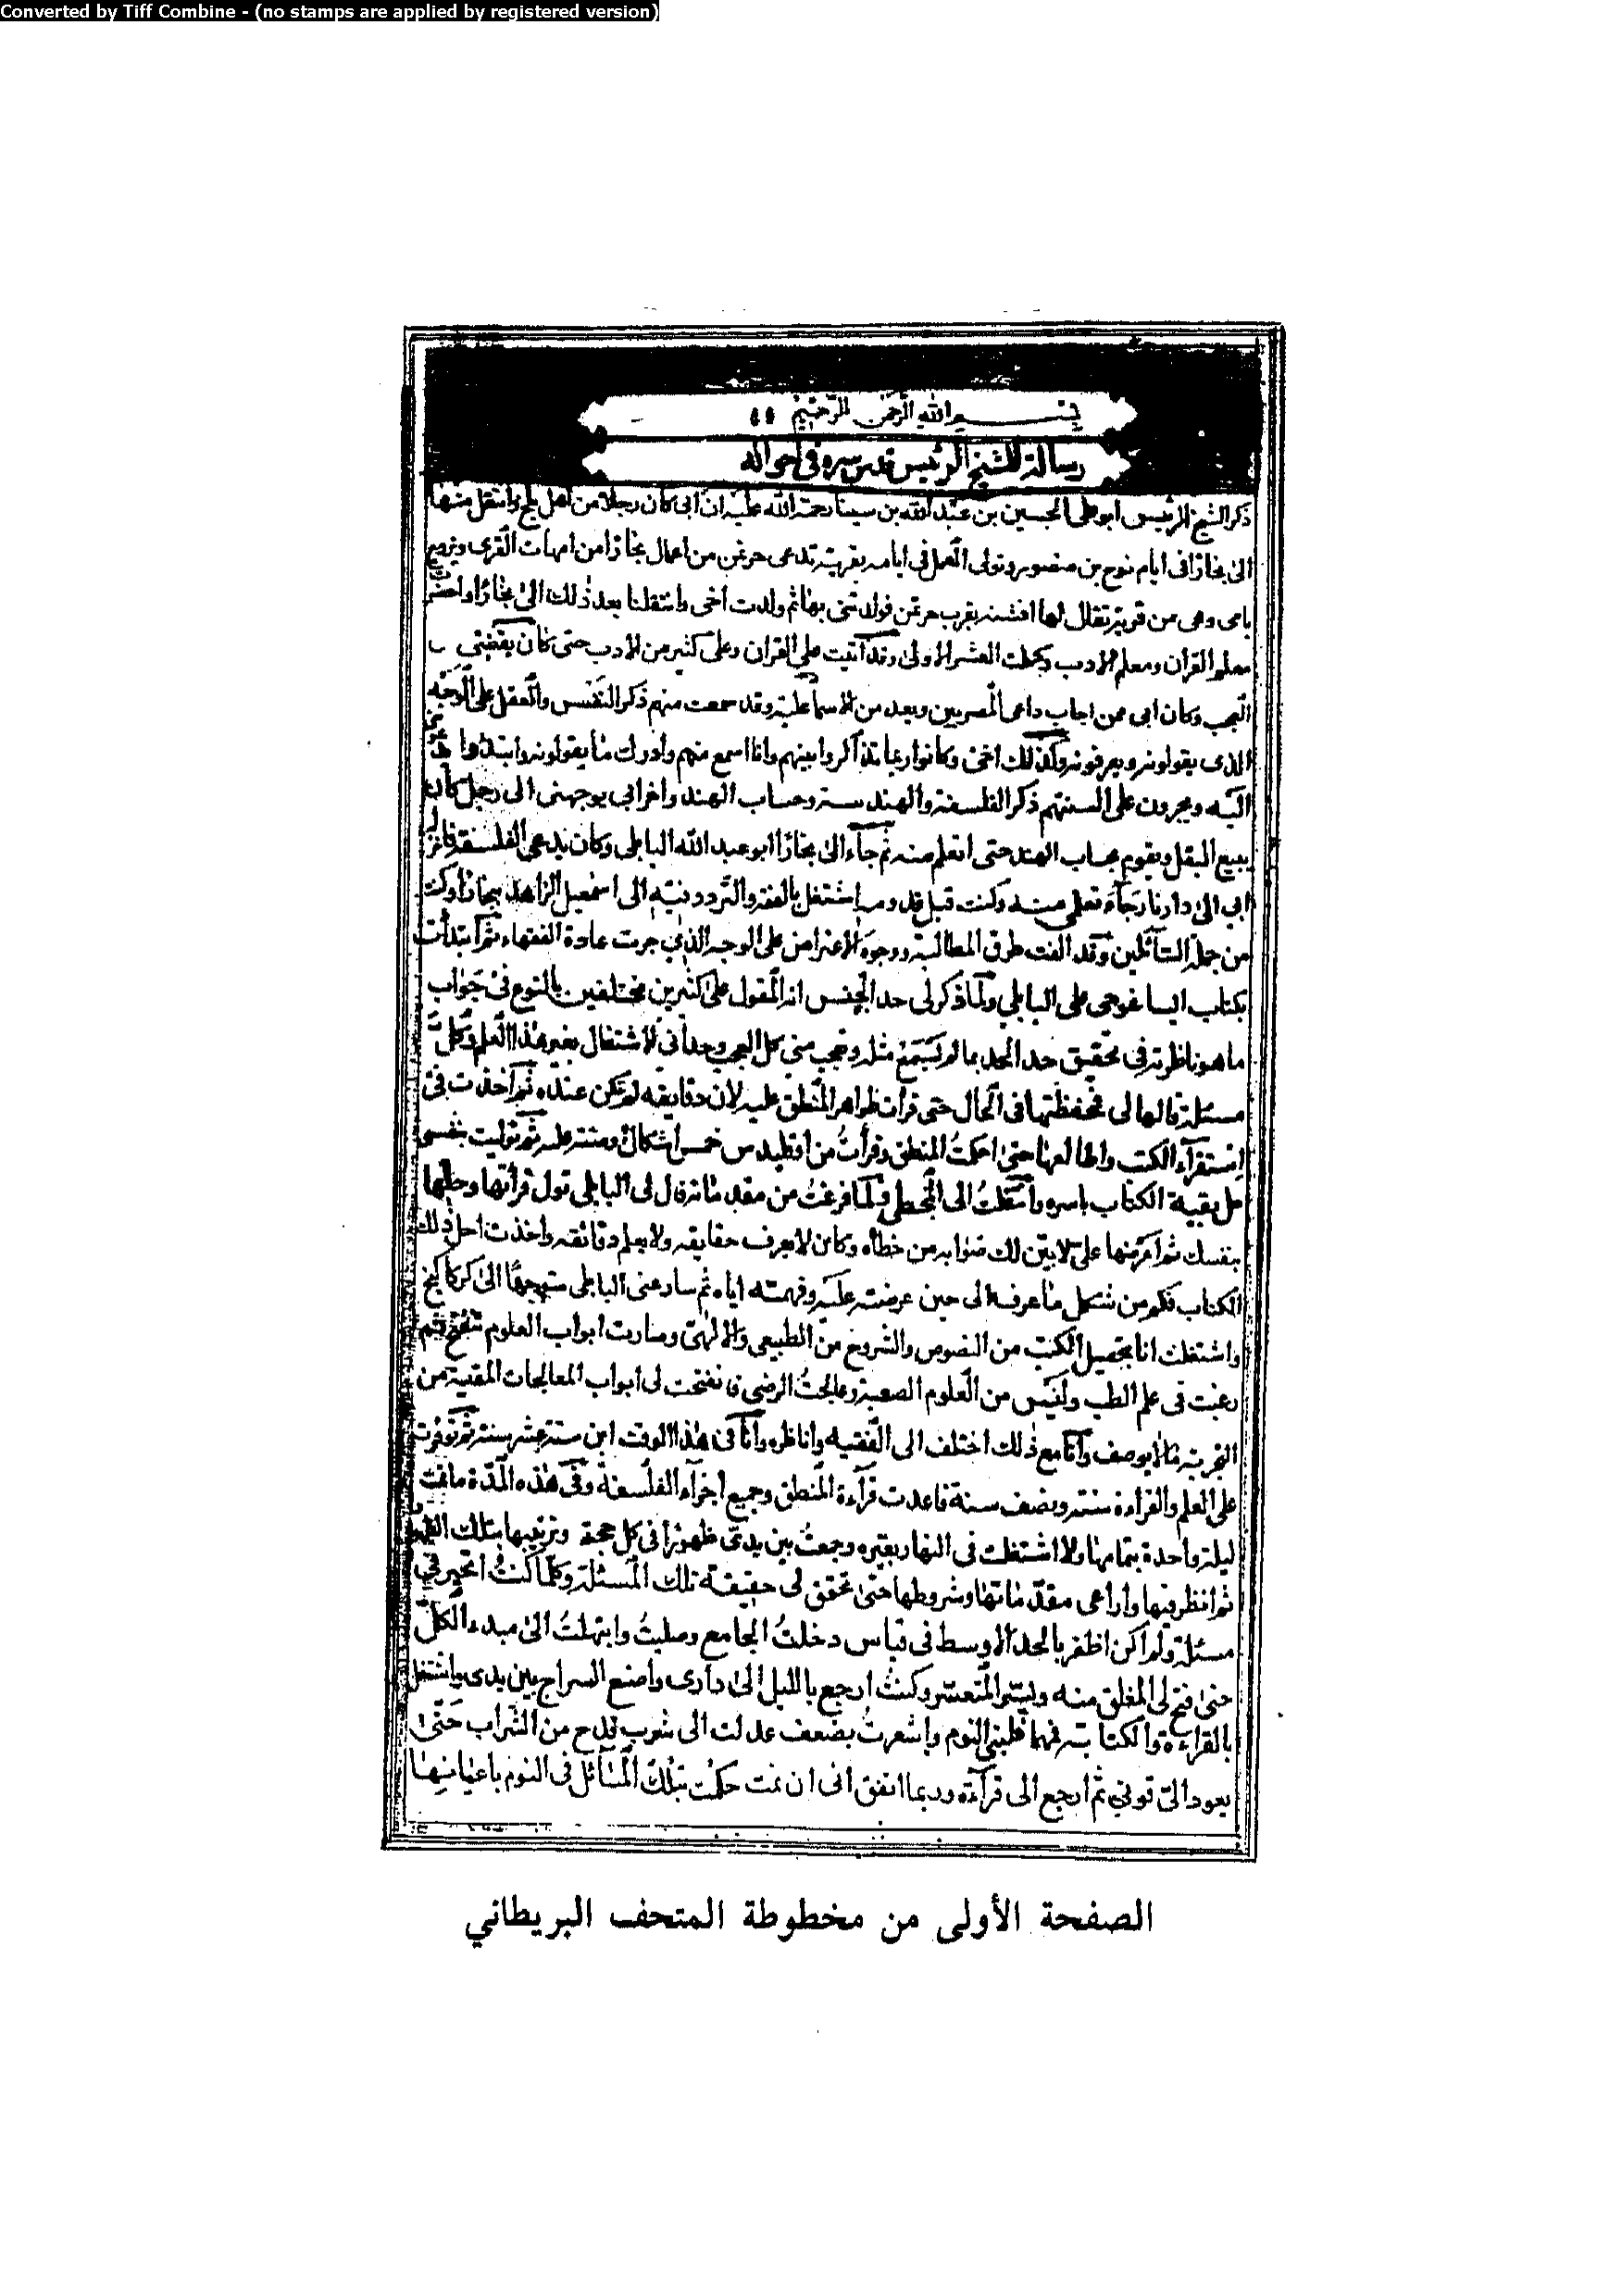 Converted by Tiff Combine - (no stamps are applied by registered version)
بسم الله الرحمن الرحيم
رسالة للشيخ الرئيس قدس سره في احواله
ذكر الشيخ الرئيس ابو على الحسين بن عبد الله بن سينا رحمة الله عليه ان ابى كان رجلا من اهل بلخ وانتقل منها
الى بخارا فى ايام نوح بن منصور وتولى العمل فى ايامه بقرية تدعى حرغن من اعمال بخارا من امهات القرى وتزوج
بامى وهى من قرية تقال لها افشنه بقرب حرغن فولدتنى بها ثم ولدت اخى وانتقلنا بعد ذلك الى بخارا واحضرت
معلم القرآن ومعلم الادب وكملت العشر الاولى وقد اتيت على القرآن وعلى كثير من الادب حتى كان يقضى
العجب وكان ابى ممن اجاب داعى المصريين ويعد من الاسماعلية وقد سمعت منهم ذكر النفس والعقل على الوجه
الذى يقولونه ويعرفونه وكذلك اخى وكانوا ربما تذاكروا بينهم وانا اسمع منهم وادرك ما يقولونه وابتدؤا
اليه ويجرون على السنتهم ذكر الفلسفة والهندسة وحساب الهند واخذ ابى يوجهنى الى رجل كان
يبيع البقل ويقوم بحساب الهند حتى اتعلم منه ثم جاء الى بخارا ابو عبد الله الباتلى وكان يدعى الفلسفة فانزله
ابى الى دارنا رجاء تعلمى منه وكنت قبل قدومه اشتغل بالفقه والتردد فيه الى اسمعيل الزاهد ببخارا وكنت
من جملة السائلين وقد الفت طرق المطالبة ووجوه الاعتراض على الوجه الذي جرت عادة الفقهاء ثم ابتدأت
بكتاب ايساغوجى على الباتلي ولما ذكر لى حد الجنس انه المقول على كثيرين مختلفين بالنوع في جواب
ما هو ناظرته فى تحقيق حد الحد بما لم يسمع مثله وتعجب منى كل العجب وحذا فى الاشتغال بغير هذا العلم وكل
مسئلة قالها لى فحفظتها فى الحال حتى قرأت ظواهر المنطق عليه لان دقايقه لم تكن عنده ثم اخذت فى
استقراء الكتب واطالعها حتى احكمت المنطق وقرأت من اقليدس خمس اشكال وستة عليه ثم توليت بنفسى
حل بقية الكتاب باسره وانتقلت الى المجسطى ولما فرغت من مقدماته قال لى الباتلى تول قرأتها وحلها
بنفسك ثم اعرضها على لابين لك صوابه من خطأه وكان لا يعرف حقايقه ولا يعلم دقائقه واخذت احل ذلك
الكتاب فكم من شكل ما عرفه الى حين عرضته عليه وفهمته اياه ثم سار عنى الباتلى متوجها الى كركانج
واشتغلت انا بتحصيل الكتب من النصوص والشروح من الطبيعى والالهى وصارت ابواب العلوم تنفتح ثم
رغبت فى علم الطب وليس من العلوم الصعبة وعالجت المرضى فانفتحت لى ابواب المعالجات المقتبسة من
التجربة مالا يوصف وانا مع ذلك اختلف الى الفقيه واناظره وانا فى هذا الوقت ابن ستة عشر سنة ثم توفرت
على العلم والقراءة سنة ونصف سنة فاعدت قرأءة المنطق وجميع اجزاء الفلسفة وفى هذه المدة ما نمت
ليلة واحدة بتمامها ولا اشتغلت فى النهار بغيره وجمعت بين يدى ظهورا فى كل حجة وترتيبها بتلك
ثم انظر فيها واراعى مقدماتها وشروطها حتى تحقق لى حقيقة تلك المسئلة وكلما كنت اتحير في
مسئلة ولم اكن اظفر بالحد الاوسط فى قياس دخلت الجامع وصليت وابتهلت الى مبدء الكل
حتى فتح لى المغلق منه ويسر المتعسر وكنت ارجع بالليل الى دارى واضع السراج بين يدى واشتغل
بالقراءة والكتابة فمهما غلبنى النوم واشعرت بضعف عدلت الى شرب قدح من الشراب حتى
يعود الى قوتي ثم ارجع الى قرآءة وربما اتفق انى ان نمت حكمت بتلك المسائل فى النوم باعيانها
الصفحة الأولى من مخطوطة المتحف البريطاني